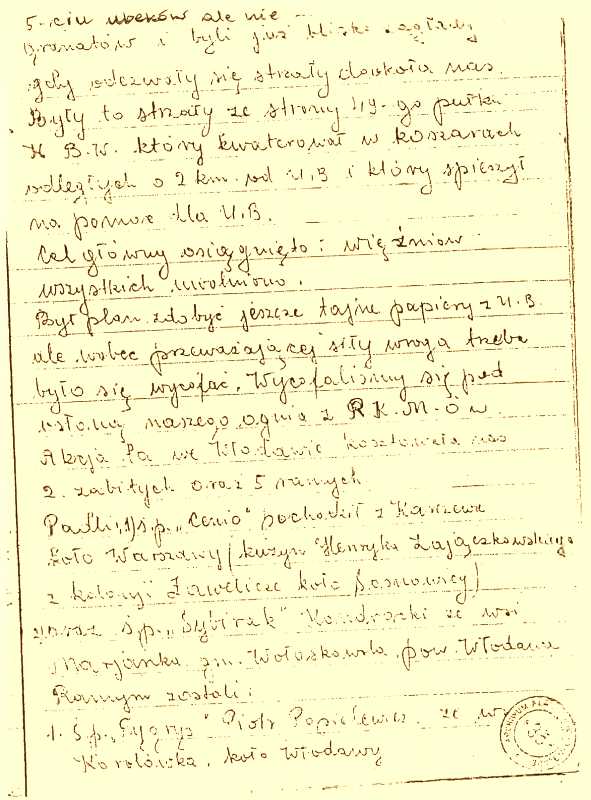 5-ciu ubeków ale nie
granatów i byli już blisko zagłady
gdy odezwały się strzały dookoła nas.
Były to strzały ze strony 49-go pułku
K B.W. który kwaterował w koszarach
odległych o 2 km. od U.B i który spieszył
na pomoc dla U.B.
Cel główny osiągnięto: więźniow
wszystkich uwolniono.
Był plan zdobyć jeszcze tajne papiery z U.B.
ale wobec przeważającej siły wroga trzeba
było się wycofać. Wycofaliśmy się pod
osłoną naszego ognia z R.K.M-ów
Akcja ta we Włodawie kosztowała nas
2. zabitych oraz 5 rannych.
Padli: 1) ś.p. „Cenio" pochodził z Karczewa
koło Warszawy (kuzyn Henryka Zajączkowskiego
z kolonji Zawelicze koło Sosnowicy)
2) oraz ś.p. „Sybirak" Kondracki ze wsi
Marjanka gm. Wołoskowola, pow. Włodawa
Rannym zostali:
1. Ś.p. „Tygrys" Piotr Popielewicz ze w
Korolówka, koło Włodawy
ARCHIWUM